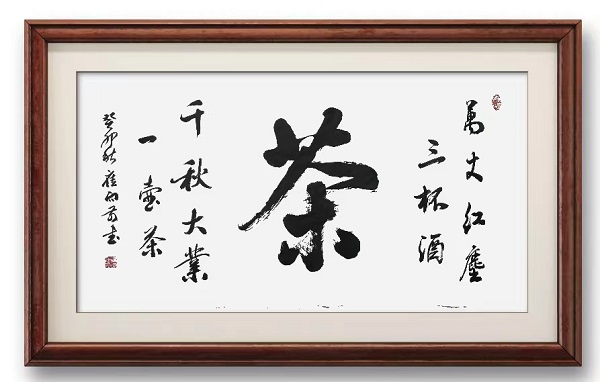 萬丈红塵
三杯酒
茶
千秋大業
一壺茶
癸卯秋